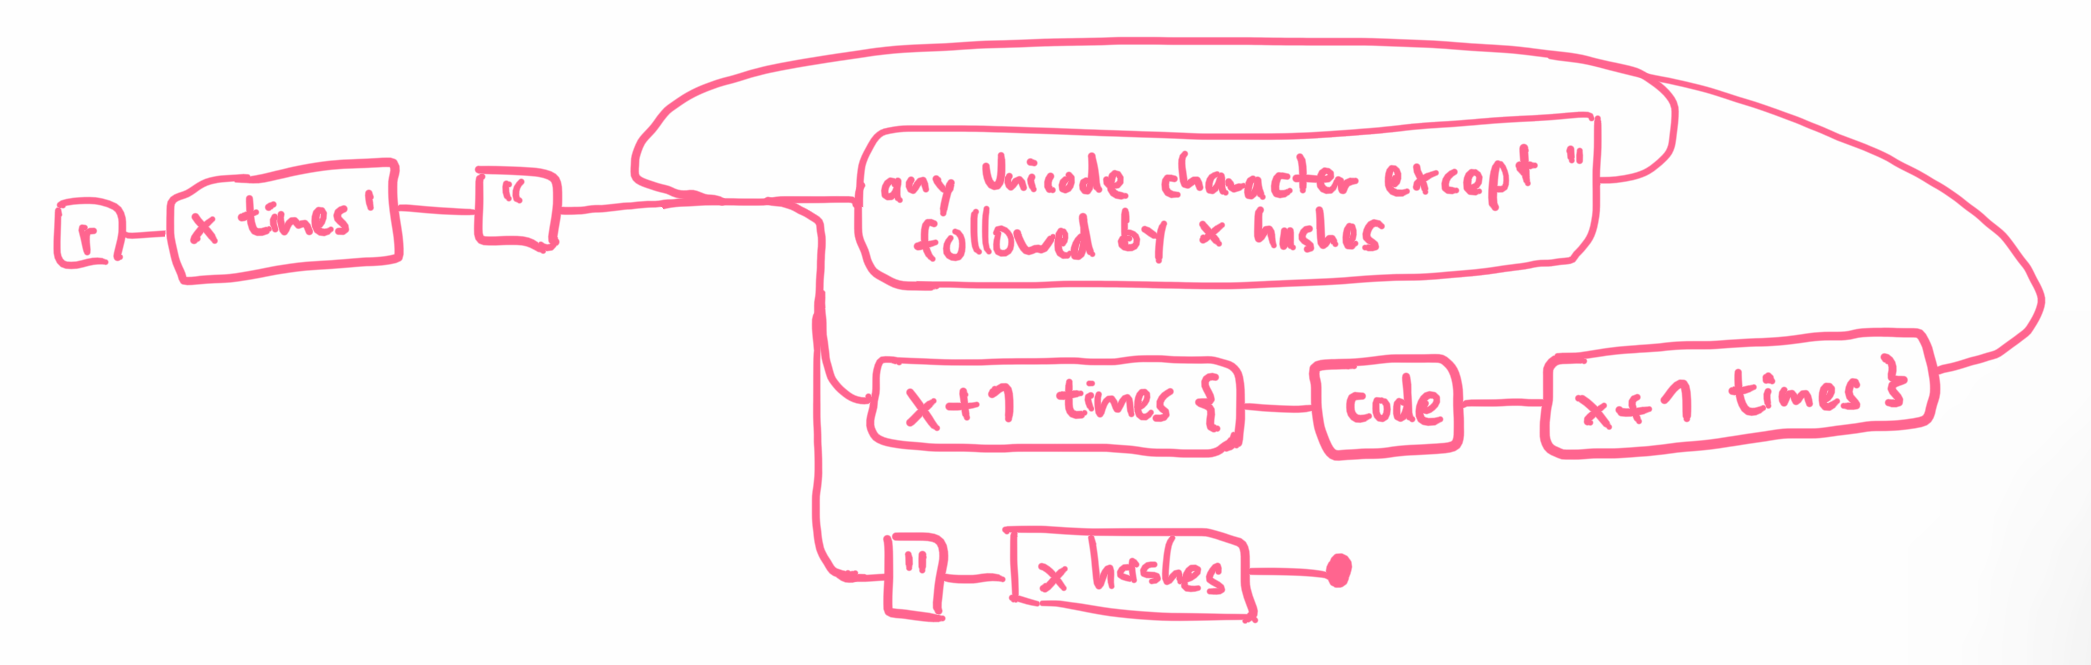 r
x times '
"
any Unicode character except "
followed by x hashes
x+1 times {
code
x+1 times }
"
x hashes